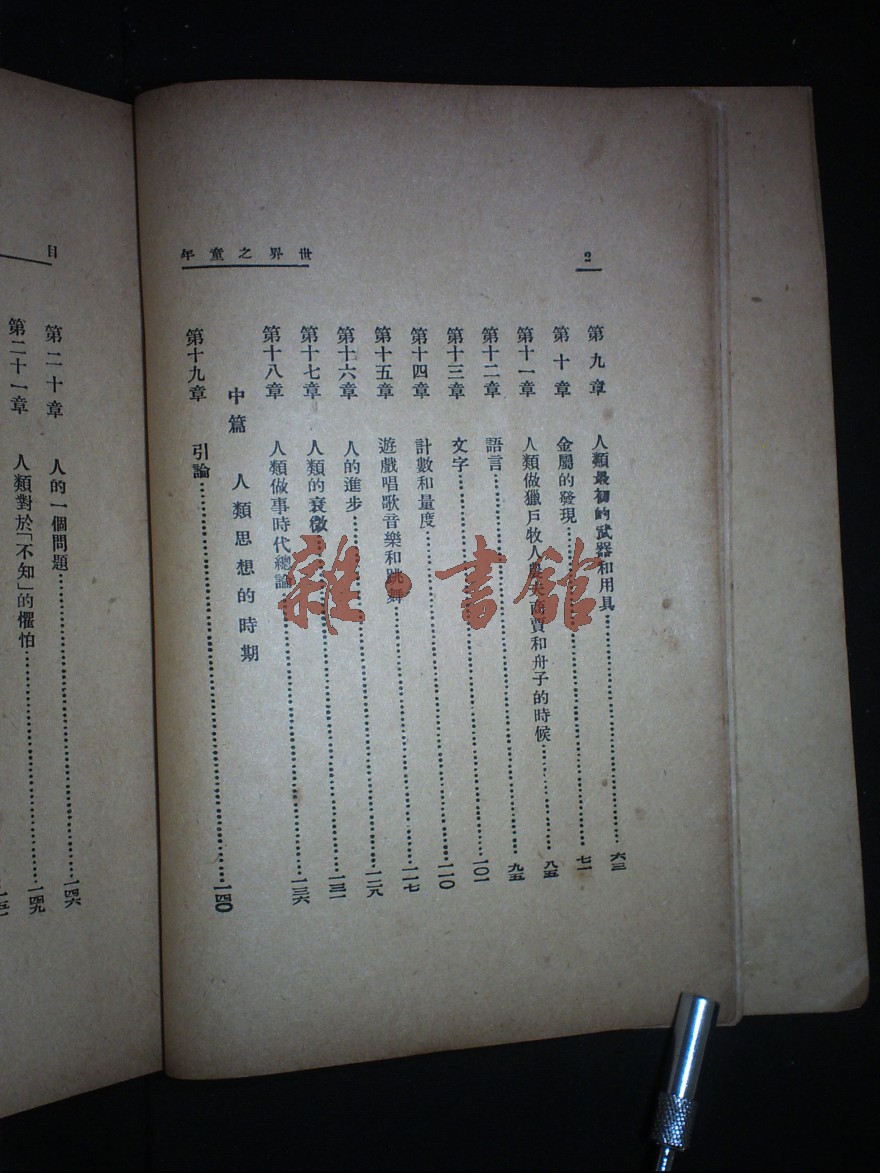 2
世界之童年
第九章 人類最初的武器和用具……六三
第十章 金屬的發現……七一
第十一章 人類做獵戶牧人農夫商賈和舟子的時候……八五
第十二章 語言……九五
第十三章 文字……一〇一
第十四章 計數和量度……一一〇
第十五章 遊戲唱歌音樂和跳舞……一一七
第十六章 人的進步……一二八
第十七章 人類的衰微……一三一
第十八章 人類做事時代總論……一三六
中篇 人類思想的時期
第十九章 引論……一四〇
目
第二十章 人的一個問題……一四六
第二十一章 人類對於「不知」的懼怕……一四九
雜·書館